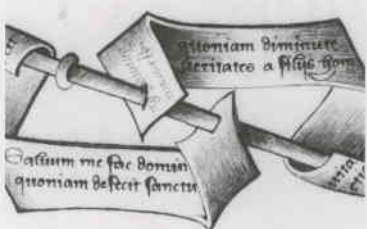 quoniam diminute
veritates a filijs hom
Saluum me fac domin
quoniam defecit sanctu